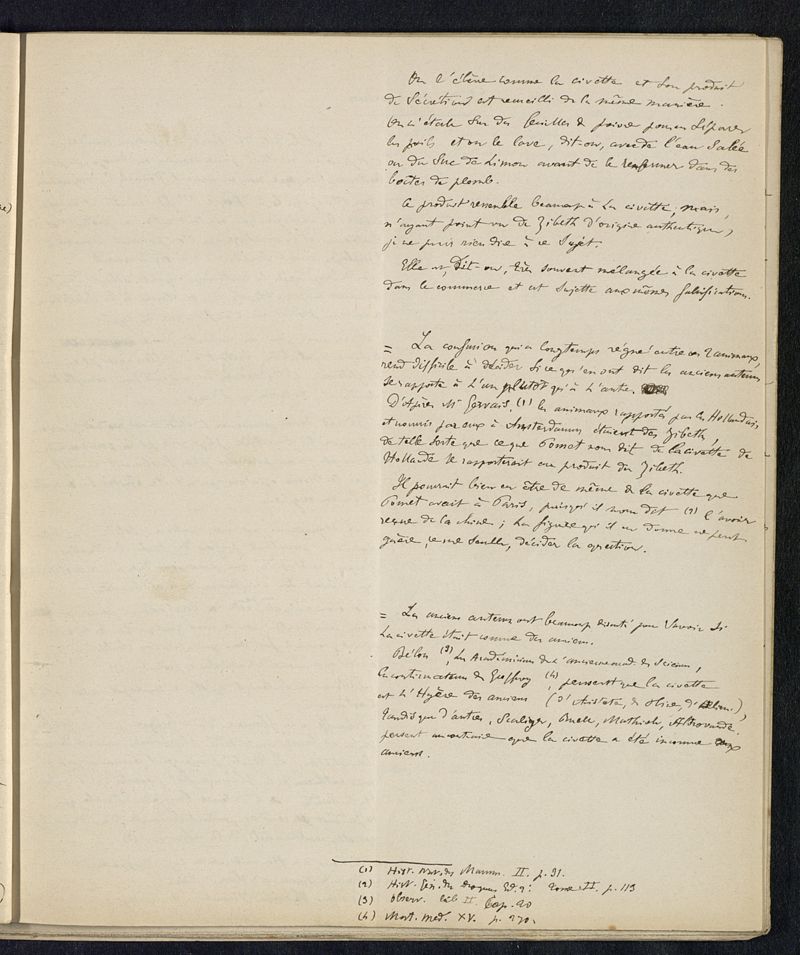 On l'élève comme la civette et son produit
de sécrétion est recueilli de la même manière.
On l'étale sur des feuilles de poivre pour en séparer
les poils et on le lave, dit-on, avec de l'eau salée
ou du suc de Limon avant de le renfermer dans des
boëtes de plomb.
Ce produit ressemble beaucoup à la civette, mais,
n'ayant point vu de Zibeth d'origine authentique,
je ne puis rien dire à ce sujet.
Elle est, dit-on, très souvent mélangée à la civette
dans le commerce et est sujette aux mêmes falsifications.
= La confusion qui a longtemps régné entre ces 2 animaux,
rend difficile à décider si ce qu'en ont dit les anciens auteurs
se rapporte à l'un plutôt qu'à l'autre.
D'après Mr Gervais, (1) les animaux rapportés par les Hollandais
et nourris par eux à Amsterdam étaient des Zibeth,
de telle sorte que ce que Pomet nous dit de la civette de
Hollande se rapporterait au produit du Zibeth.
Il pourrait bien en être de même de la civette que
Pomet avait à Paris, puisqu'il nous dit (2) l'avoir
reçue de la Chine; la figure qu'il en donne ne peut
guère, à elle seule, décider la question.
= Les anciens auteurs ont beaucoup discuté pour savoir si
la civette était connue des anciens.
Bélon (3), les Académiciens de l'ancienne acad. des Sciences,
les continuateurs de Geoffroy (4), pensent que la civette
est l'Hyène des anciens (d'Aristote, de Pline, d'Elien.),
tandis que d'autres, Scaliger, Ruelle, Mathiole, Aldrovande
pensent au contraire que la civette a été inconnue aux
anciens.
(1) Hist. nat. des Mamm. II. p. 31.
(2) Hist. Gén. des Drogues Ed. 2e Tome II. p. 113
(3) Observ. Lib II. Cap. 20
(4) Mat. med. XV. p. 270.